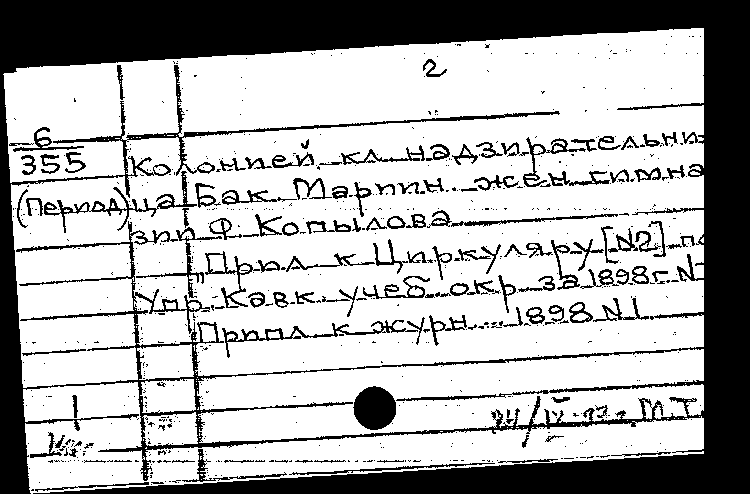 2
6
355 Колонией кл надзирательни-
(Период) ца Бак. Мариин. жен гимна
зии Ф. Копылова
"Прил к Циркуляру [N2] по
Упр. Кавк. учеб. окр. за 1898 г. N
Прил к журн... 1898 N 1
1
24/IV-77 г. М.Т.